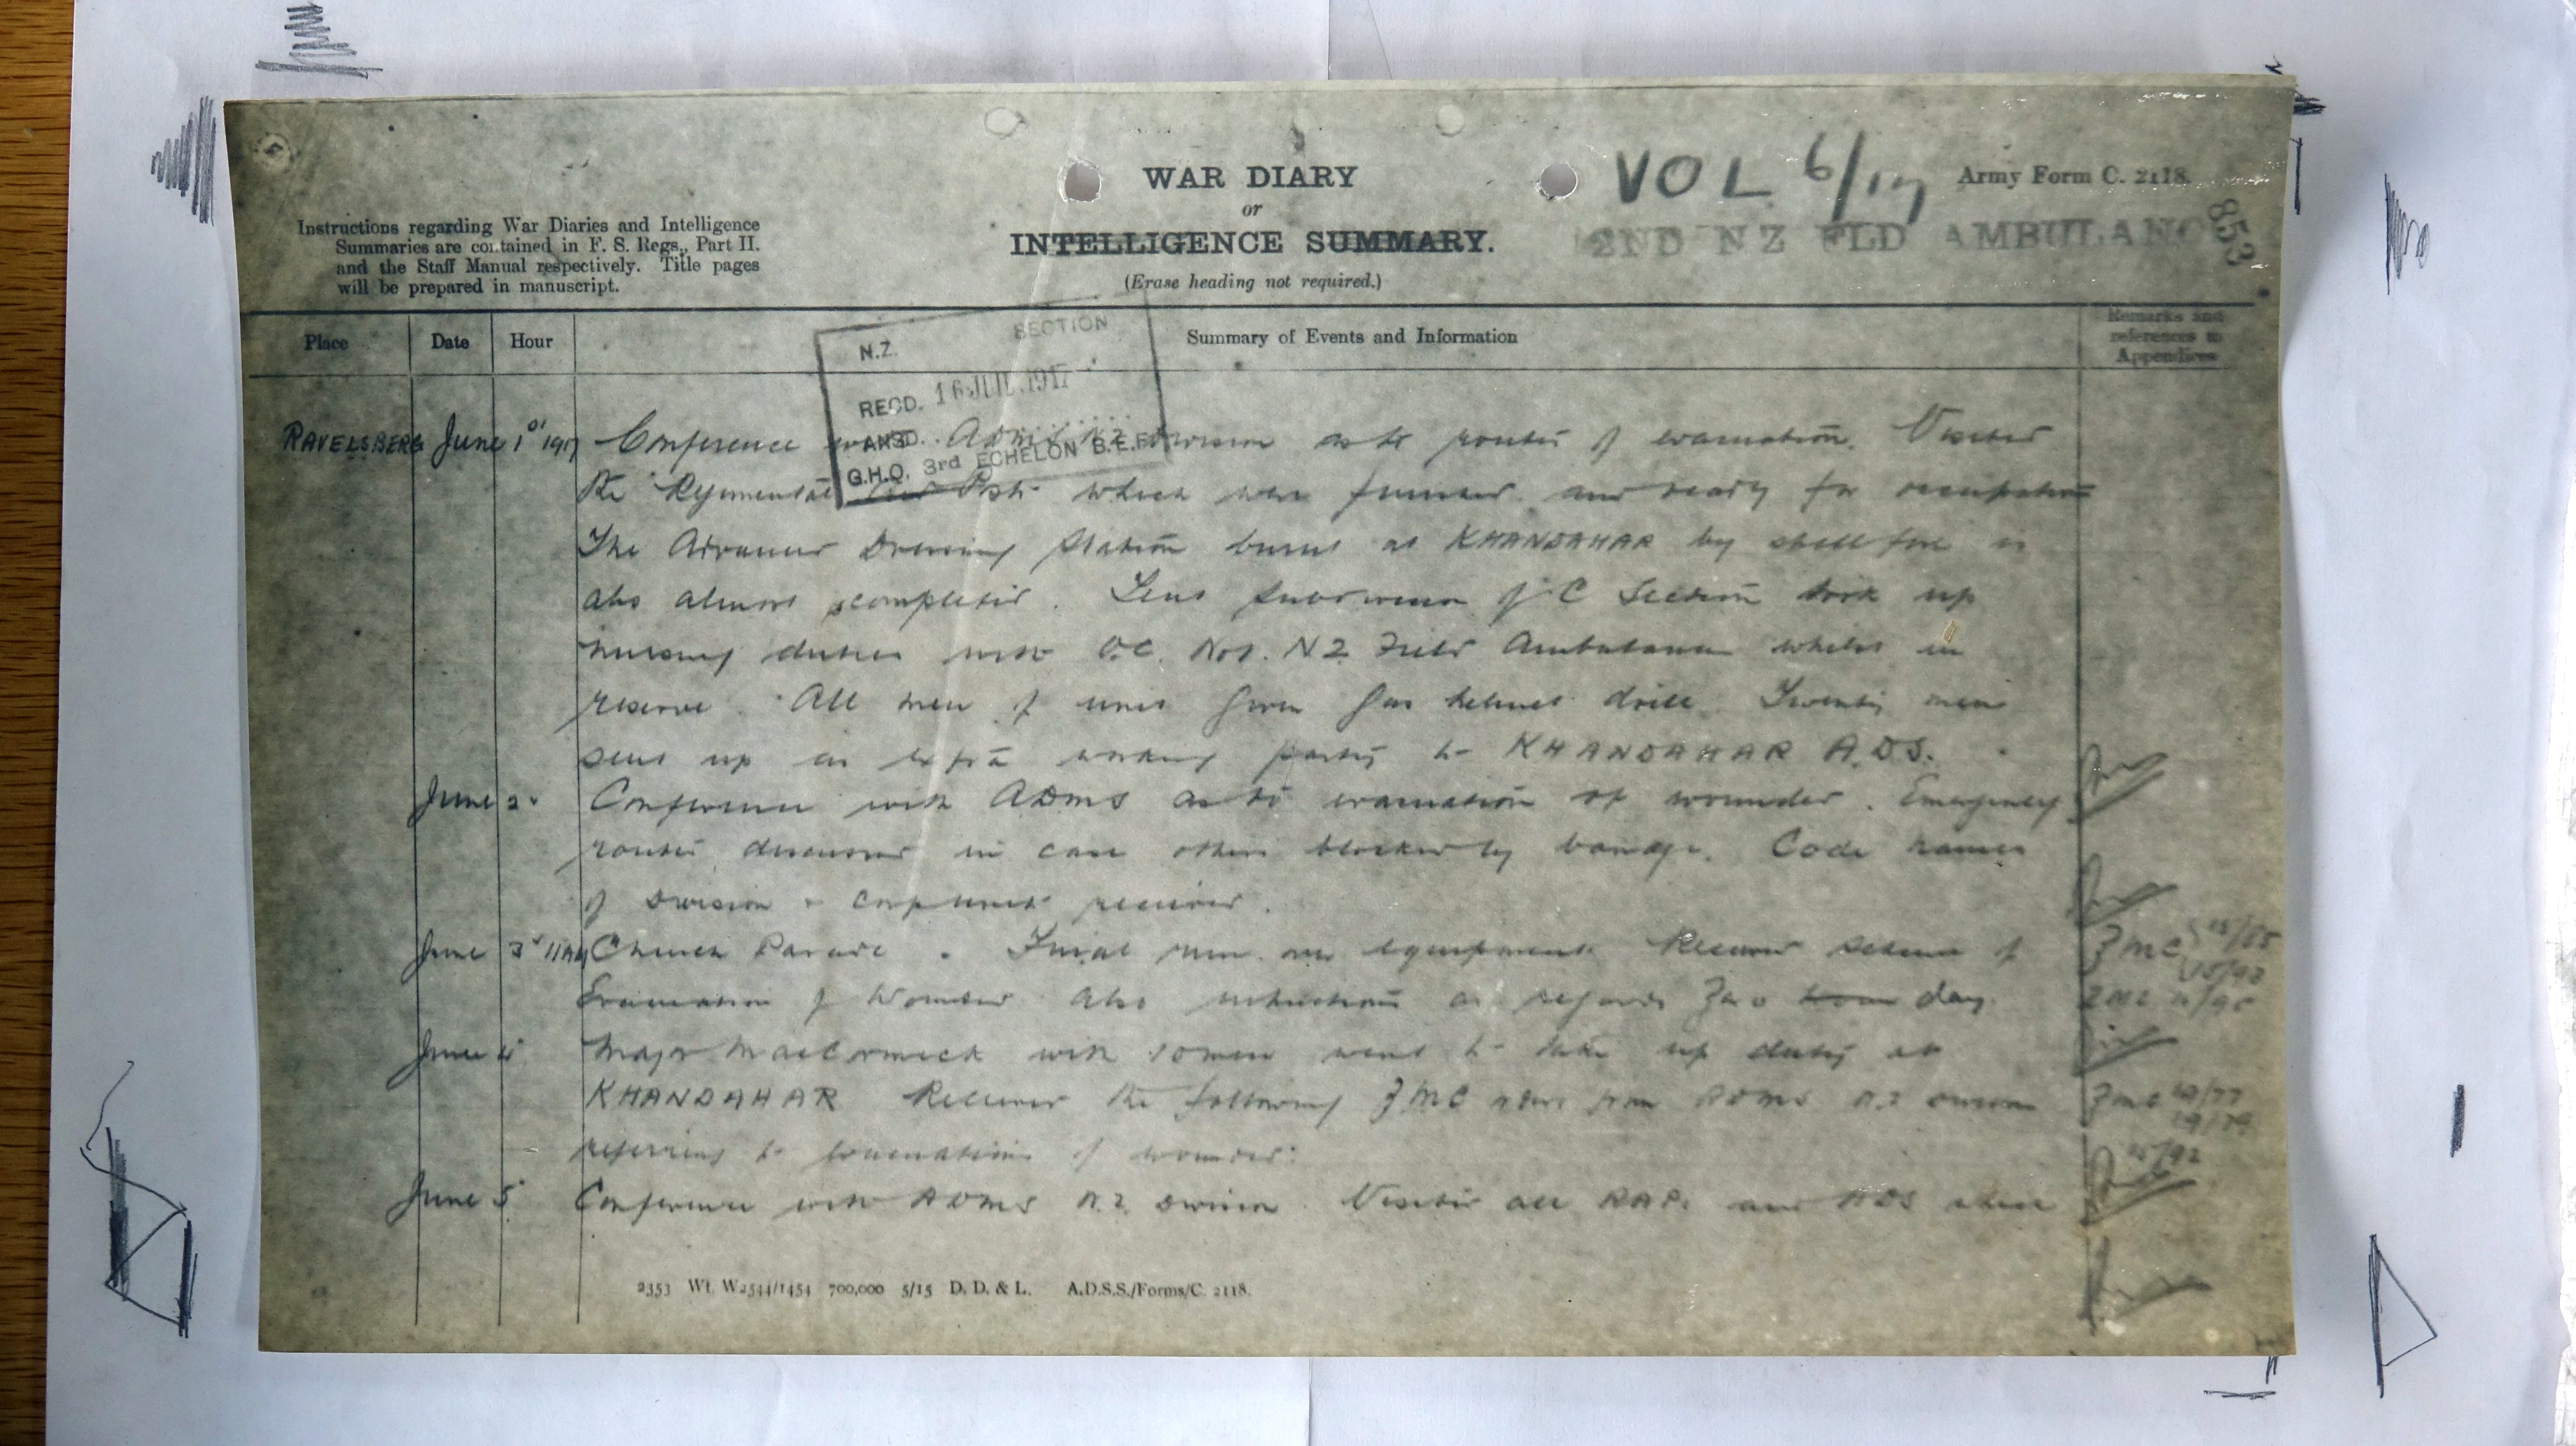 WAR DIARY
or
INTELLIGENCE SUMMARY.
(Erase heading not required.)
Instructions regarding War Diaries and Intelligence
Summaries are contained in F. S. Regs., Part II.
and the Staff Manual respectively. Title pages
will be prepared in manuscript.
VOL 6/17
Army Form C. 2118.
2ND NZ FLD AMBULANC
853
Place
Date
Hour
Summary of Events and Information
Remarks and
references to
Appendices
N.Z. SECTION
RECD. 16 JUL. 1917
ANSD.
G.H.Q. 3rd ECHELON B.E.F.
RAVELSBERG June 1st 1917 Conference with ADMS NZ Division as to routes of evacuation. Visited
the Regimental Aid Posts which were finished and ready for occupation
The Advanced Dressing Station burnt at KHANDAHAR by shell fire is
also almost completed. Tent subdivision of C Section took up
nursing duties with O.C. No1. NZ Field Ambulance whilst in
reserve. All men of unit given gas helmet drill. Twenty men
sent up as extra working party to KHANDAHAR A.D.S.
June 2 Conference with ADMS as to evacuation of wounded. Emergency
routes discussed in case others blocked by barrage. Code names
of Division & Corps units received.
June 3 11AM Church Parade. Final run over equipment. Received scheme of
Evacuation of Wounded also instructions as regards Zero hour day.
ZMC
June 4 Major MacCormick with 10 men went to take up duty at
KHANDAHAR Received the following ZMC orders from ADMS NZ Division
ZMC 19/77
referring to evacuation of wounded:
15/92
June 5 Conference with ADMS NZ Division. Visited all RAPs and ADS
2353 Wt. W2544/1454 700,000 5/15 D. D. & L. A.D.S.S./Forms/C. 2118.